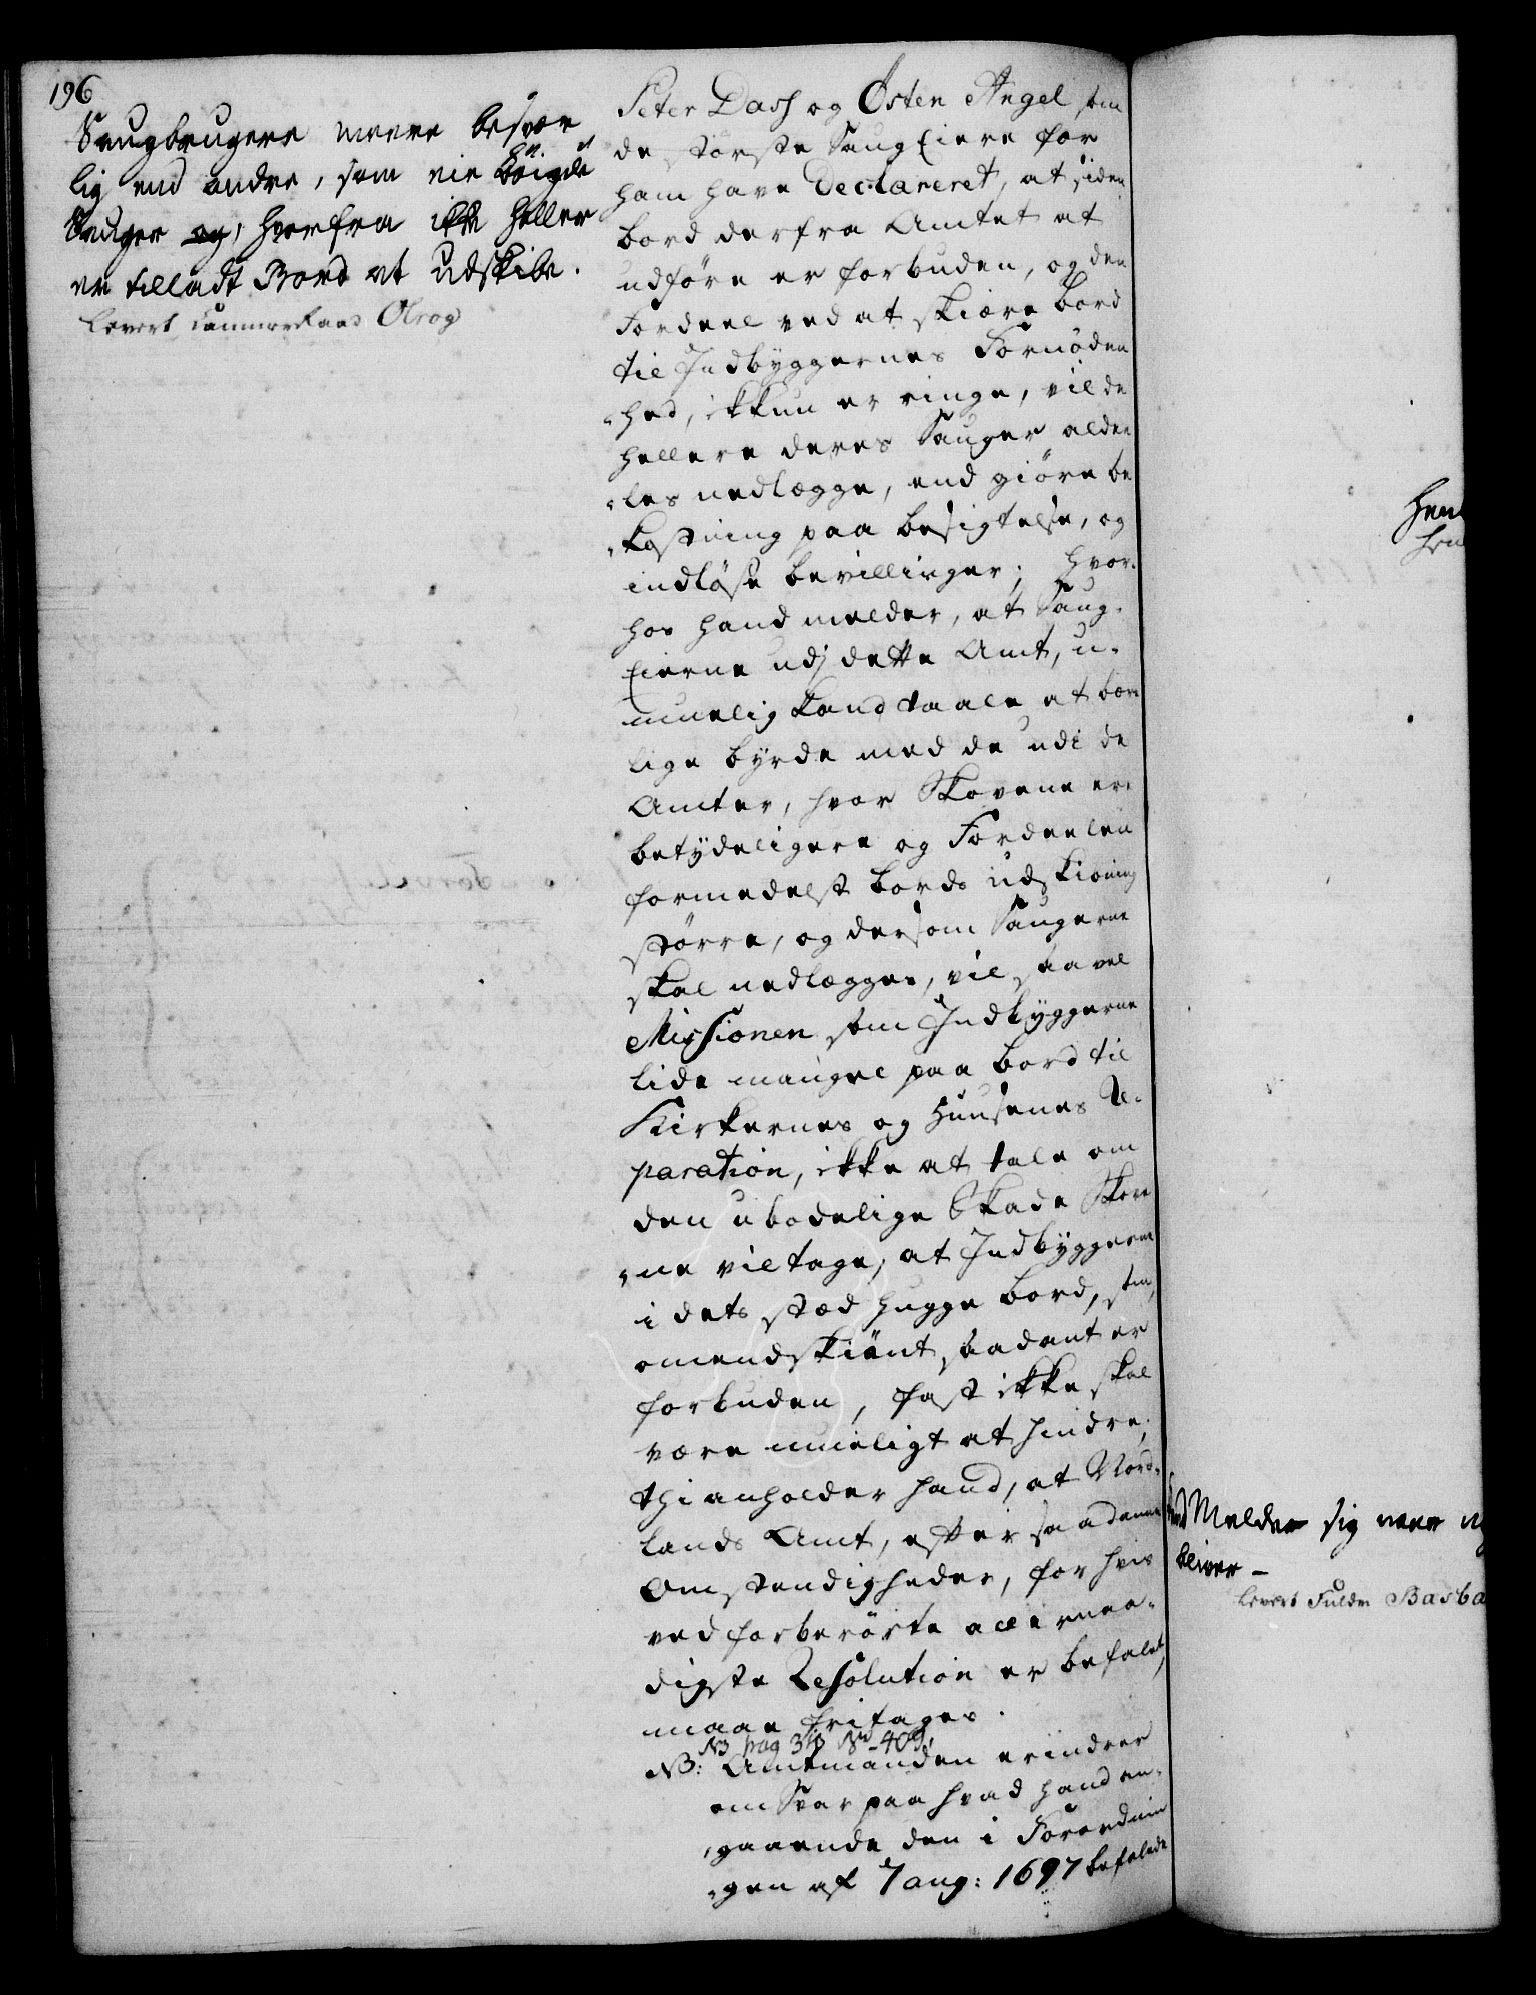 196
Saugbrugere meere besvær
lig end andre, som eie bøigde
Sauger og, hvorfra ikke heller
er tilladt Bord at Udskibe.
Levert Cammerraad Olrog
Peter Dass og Østen Angel, som
de største Saug Eiere for
ham have Declareret, at siden
bord derfra Amtet at
udføre er forbuden, og den
Fordeel ved at skiære bord
til Indbyggernes Fornøden
-hed, ikkun er ringe, vil de
hellere deres Sauger alde
-les nedlægge, end giøre be
-kostning paa besigtelse, og
indløse bevillinger; hvor-
hos hand melder, at Saug-
Eierne udj dette Amt, u-
muelig kand taale at bære
lige byrde med de udi de
Amter, hvor Skovene ere
betydeligere og Fordeelen
formedelst bords udskibning
større, og dersom Saugerne
skal nedlegges, vil saavel
Missionen som Indbyggerne
lide mangel paa bord til
Kirkernes og Huusenes Re-
paration, ikke at tale om
den ubodelige Skade Skove
-ne vil tage, at Indbyggerne
i dets stæd hugge bord, som,
omendskiønt saadant er
forbuden, fast ikke skal
være mueligt at hindre;
thi anholder hand, at Nord-
lands Amt, efter saadanne
Omstændigheder, for hvis
ved forberørte allernaa-
digste Resolution er befalet,
maae fritages.
NB pag 318 No 409.
NB: Amtmanden erindrer
om Svar paa hvad hand an-
-gaaende den i Forordnin
-gen af 7 aug: 1697 befalede
Melder sig
bliver -
Levert Fuldm Basba